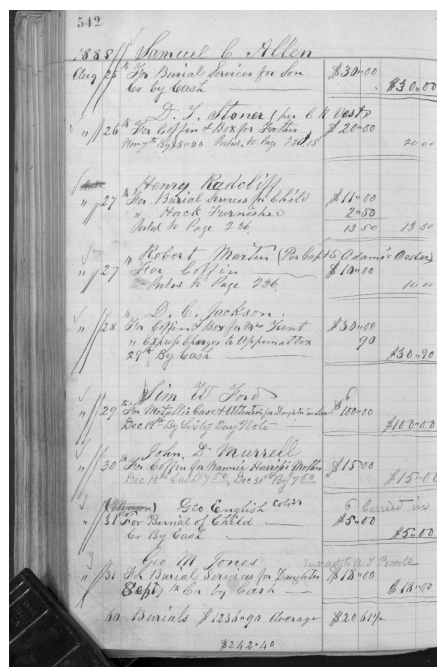 542
1888 Samuel C. Allen
Aug 25th For Burial Services for Son $30.00
Cr by Cash $30.00
D. T. Stoner (per C. W.
" 26th For Coffin & Box for Father $20.00
Nov 7th By Postd. to Page 236 20.00
Henry Radcliff
" 27th For Burial Services for Child $11.00
" Hack Furnished 2.50
Posted to Page 236 13.50 13.50
Robert Martin (Per Capt Adams
" 27th For Coffin $10.00
Posted to Page 236. 10.00
D. C. Jackson.
" 28th For Coffin & Box for Wm Trent $30.00
" Express Charges to Appomattox 90
29th By Cash $30.90
Sim W. Ford
" 29th For Metallic Case & Attention for Daughter in Law $100.00
Dec 19th By Sixty Day Note $100.00
John D. Murrell
" 30 For Coffin for Nannie Harris' Mother $15.00
Dec 15th Cash 7.50, Dec 30th By 7.50 $15.00
Geo English Cold Carried in
" 31 For Burial of Child $5.00
Cr By Cash $5.00
Geo M. Jones
" 31 For Burial Services for Daughter $18.00
Sept Cr by Cash $18.00
60 Burials $1236.90 Average $20 61½
$242.40